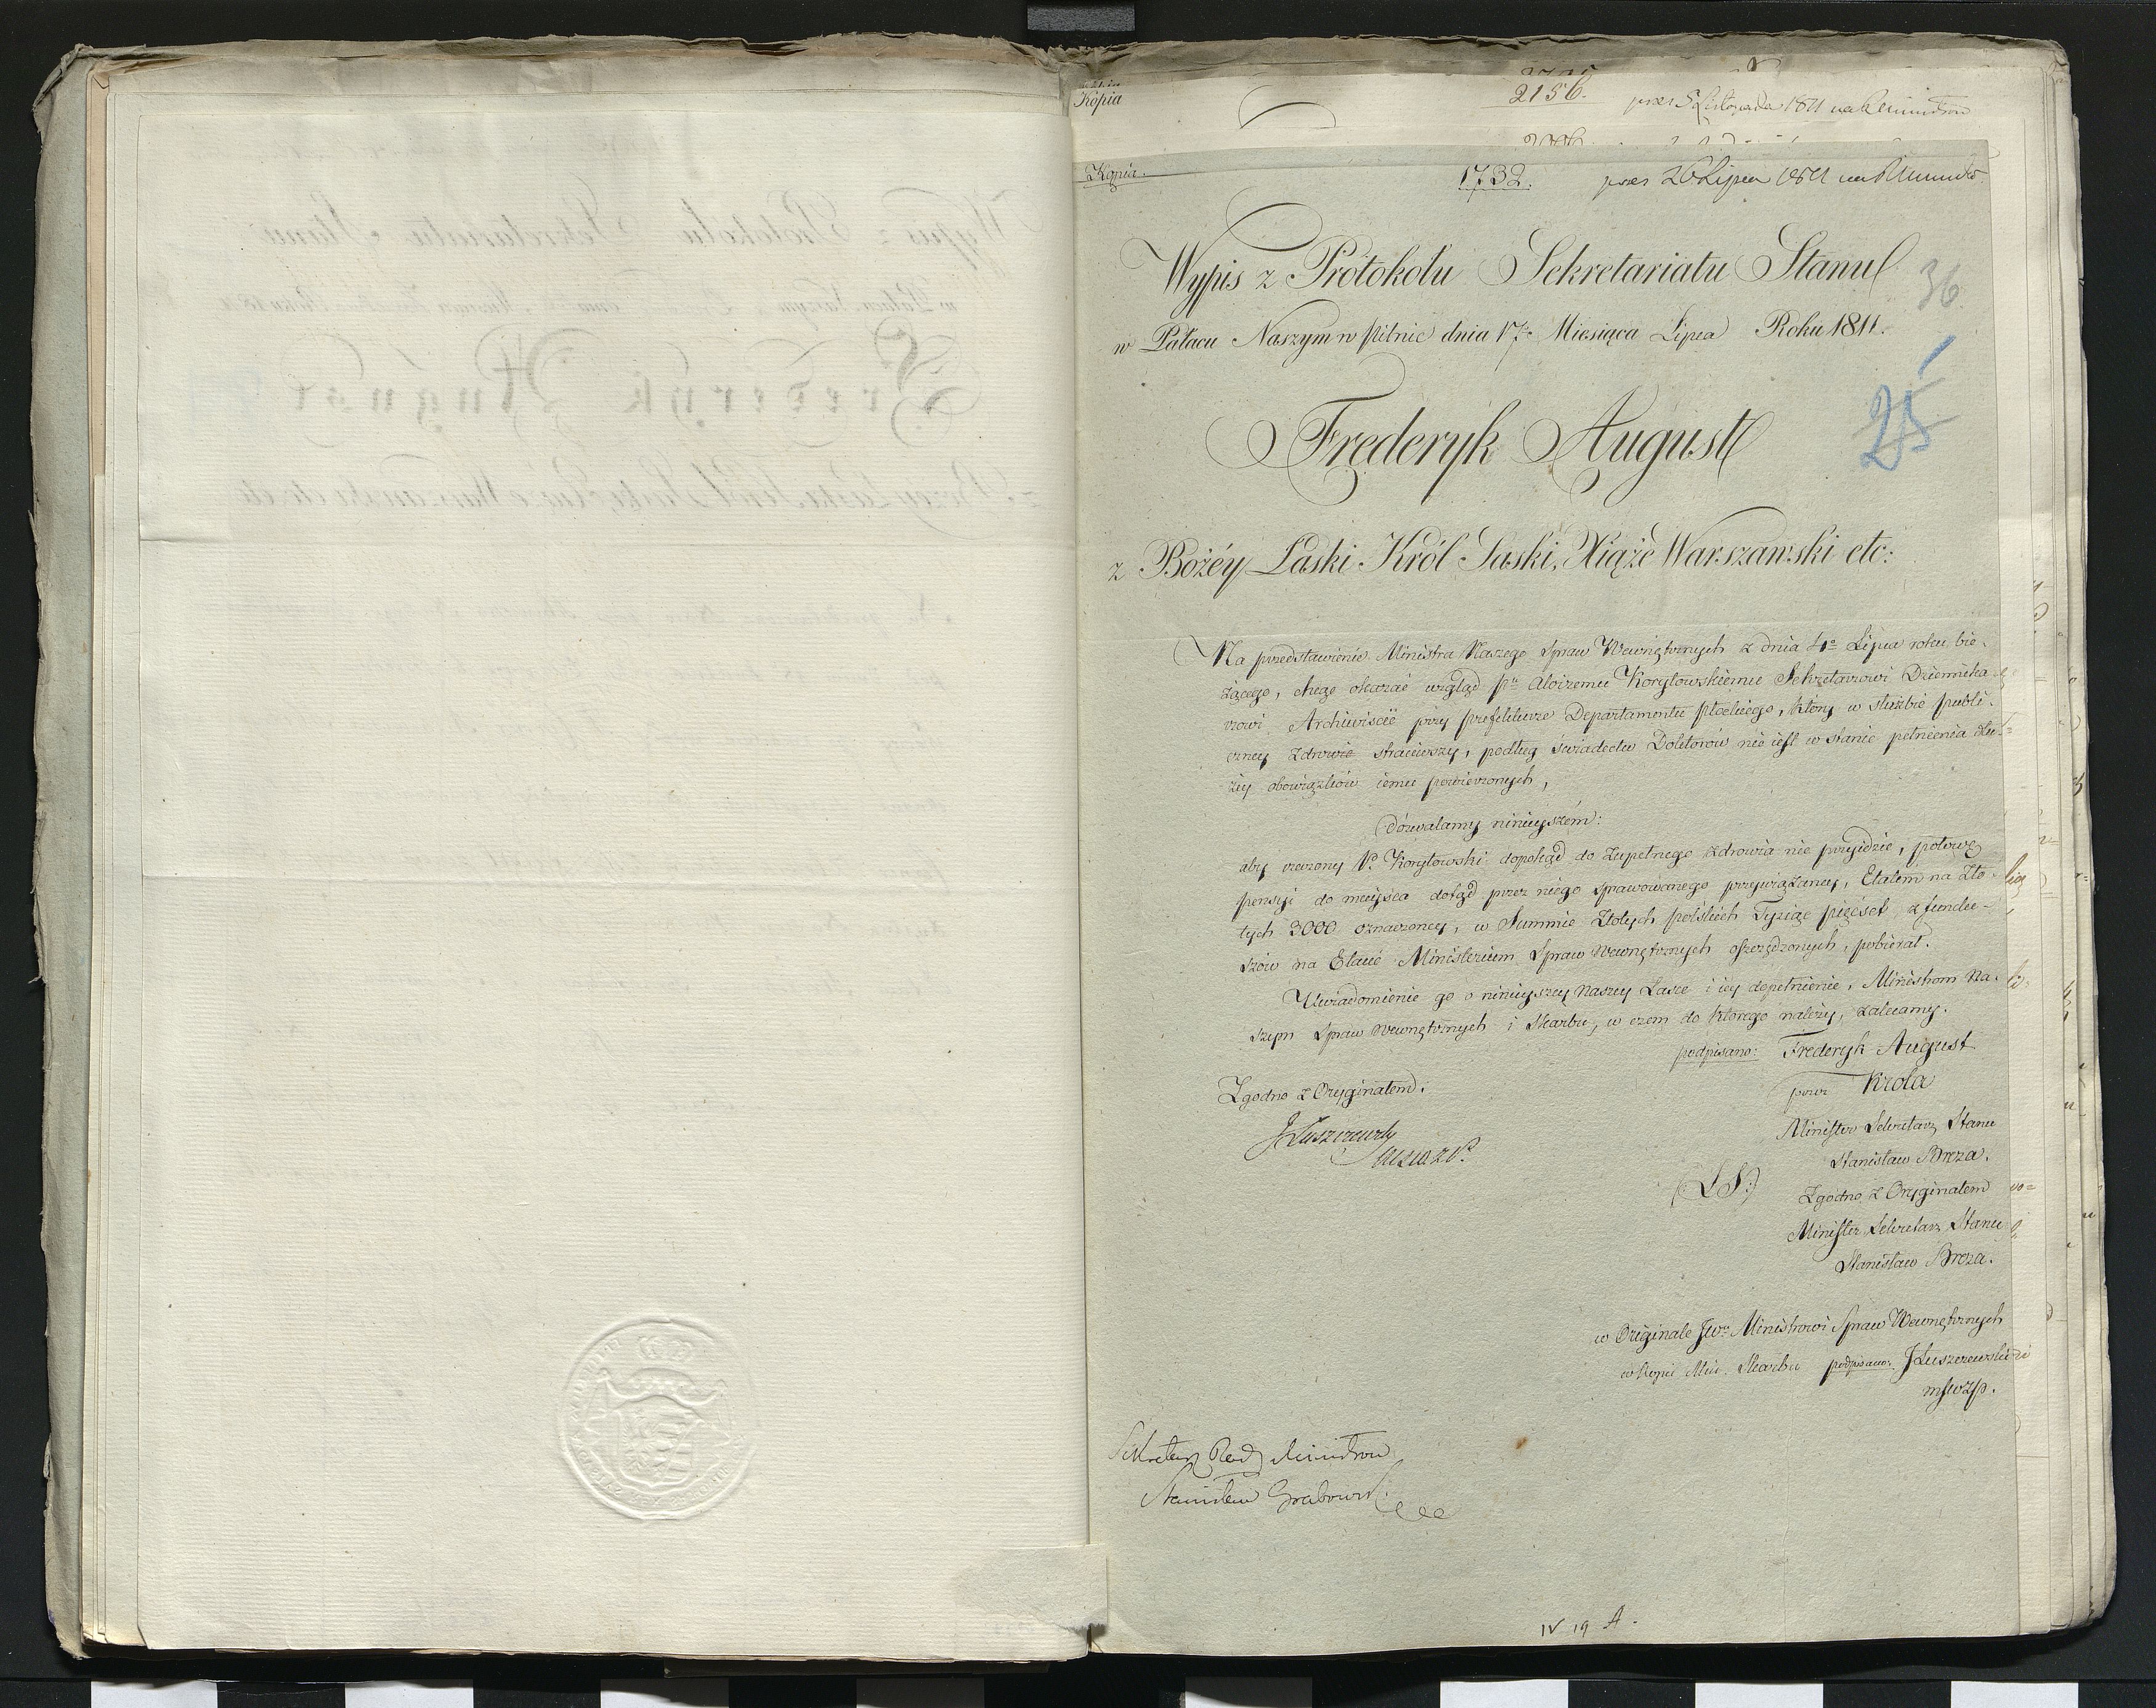 Kopia
2156.
pres 5 Listopada 1811 na R Ministrów
Kopia.
1732.
pres 26 Lipca 1811 na R Ministrów
Wypis z Protokołu Sekretariatu Stanu
36
w Pałacu Naszym w Pilnic dnia 17º Miesiąca Lipca Roku 1811.
25
Frederyk August
z Bożéy Łaski Król Saski, Xiąże Warszawski etc:
Na przedstawienie Ministra Naszego Spraw Wewnętrznych z dnia 4º Lipca roku bie-
żącego, chcąc okazać wzgląd Pu Aloizemu Korytowskiemu Sekretarzowi Dziennika-
rzowi Archiwiście przy Prefekturze Departamentu Płockiego, który w służbie publi-
czney zdrowie straciwszy, podług świadectw Doktorów nie iest w stanie pełnienia dłu-
żey obowiązków iemu powierzonych,
Dozwalamy ninieyszém:
aby rzeczony P. Korytowski dopokąd do zupełnego zdrowia nie przyidzie, połowę
pensyi do mieysca dotąd przez niego sprawowanego przywiązaney, Etatem na Zło-
tych 3000 oznaczoney, w Summie Złotych polskich Tysiąc pięćset z fundu-
szów na Etacie Ministerium Spraw Wewnętrznych oszczędzonych, pobierał.
Uwiadomienie go o ninieyszey Naszey Łasce i iey dopełnienie, Ministrom Na-
szym Spraw Wewnętrznych i Skarbu, w czem do którego należy, zalecamy.
podpisano: Frederyk August
Zgodno z Oryginałem.
przez Króla
JŁuszczewsky
Minister Sekretarz Stanu
Stanisław Breza.
(:LS:)
Zgodno z Oryginałem
Minister Sekretarz Stanu
Stanisław Breza.
w Originale JWu Ministrowi Spraw Wewnętrznych
w Kopii Min. Skarbu podpisano: JŁuszczewski
mswzp.
Sekretarz Rady Ministrów
Stanisław Grabowski
IV 19 A.